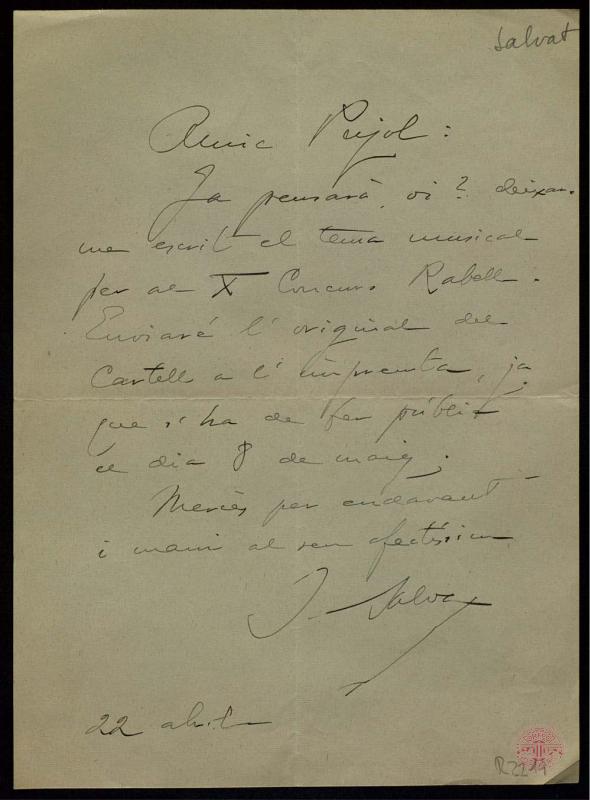 Salvat
Amic Pujol:
Ja pensarà, oi? deixar-
me escrit el tema musical
per al X Concurs Rabell.
Enviaré l'original del
Cartell a l'impremta, ja
que s'ha de fer públic
el dia 8 de maig.
Mercès per endavant
i mani al seu afectíssim
J. Salvat
22 abril
R2214